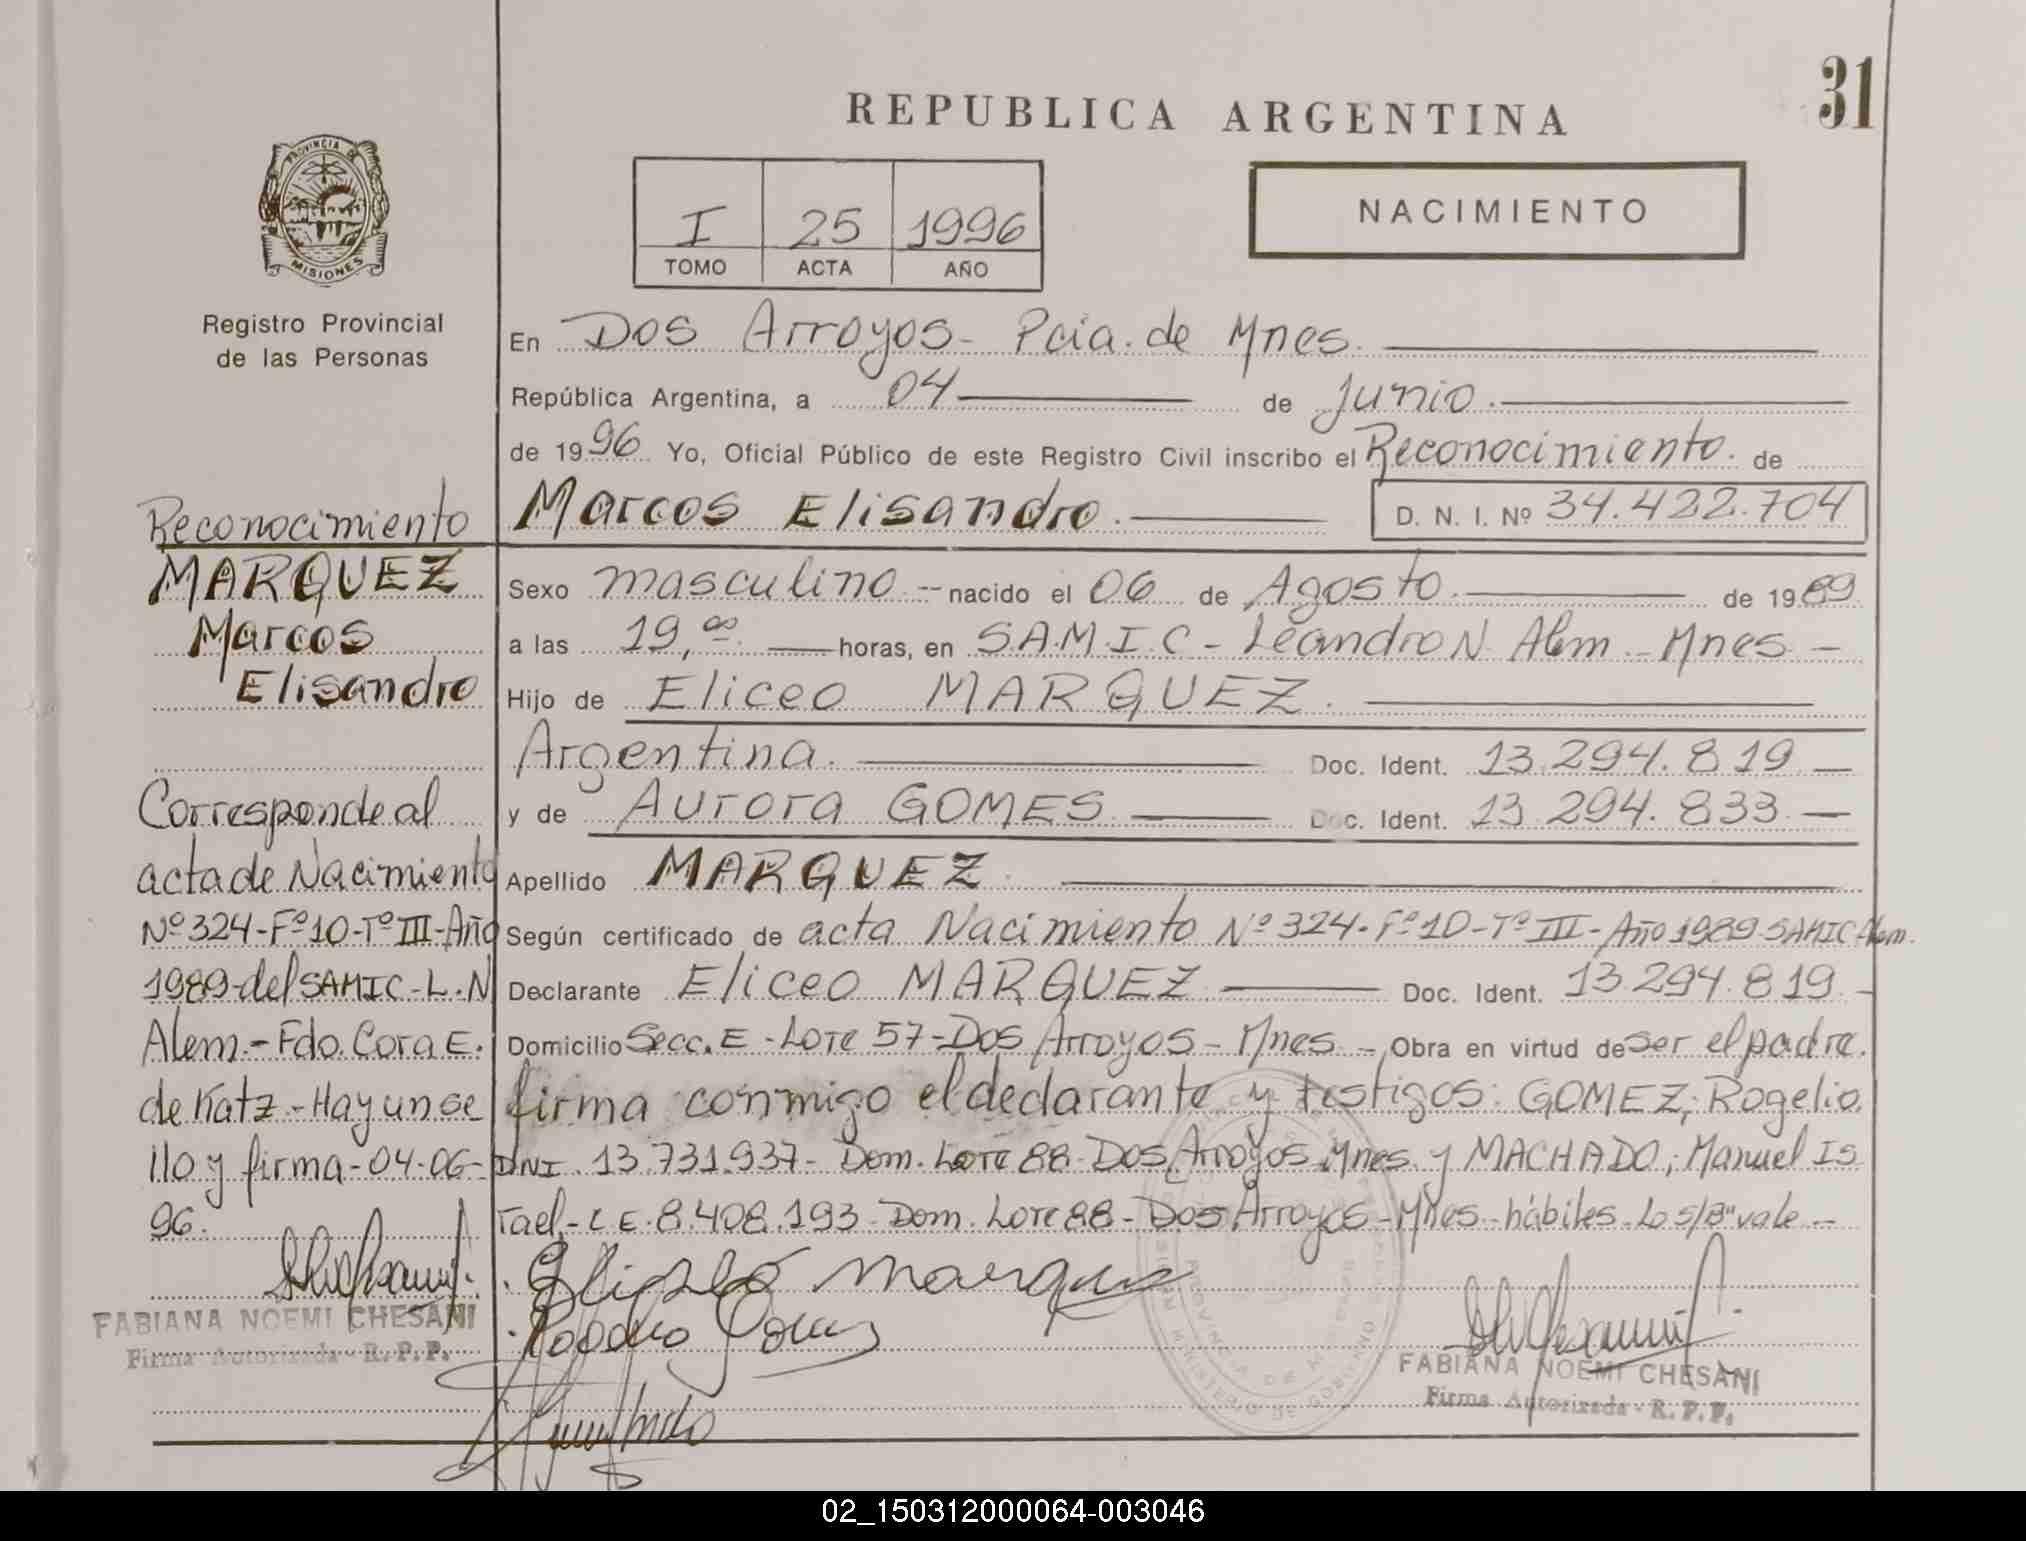 31
REPUBLICA ARGENTINA
PROVINCIA DE
MISIONES
I 25 1996
TOMO ACTA AÑO
NACIMIENTO
Registro Provincial
de las Personas
En Dos Arroyos - Pcia. de Mnes.
República Argentina, a 04 de Junio.
de 1996 Yo, Oficial Público de este Registro Civil inscribo el Reconocimiento. de
Marcos Elisandro. D. N. I. Nº 34.422.704
Sexo masculino - nacido el 06 de Agosto. de 1989
a las 19,00 horas, en S.A.M.I.C - Leandro N. Alem - Mnes -
Hijo de Eliceo MARQUEZ.
Argentina. Doc. Ident. 13.294.819
y de Aurora GOMES Doc. Ident. 13.294.833
Apellido MARQUEZ
Según certificado de acta Nacimiento Nº 324-Fº10-Tº III-Año 1989 SAMIC Alem.
Declarante Eliceo MARQUEZ Doc. Ident. 13.294.819
Domicilio Secc. E - Lote 57 - Dos Arroyos - Mnes - Obra en virtud de ser el padre.
firma conmigo el declarante y testigos: GOMEZ, Rogelio.
DNI. 13.731.937- Dom. Lote 88 Dos Arroyos Mnes y MACHADO, Manuel Is
rael - L E. 8.408.193 - Dom. Lote 88 - Dos Arroyos - Mnes - hábiles - Lo s/B "vale -
FABIANA NOEMI CHESANI
Firma Autorizada - R. P. P.
Reconocimiento
MARQUEZ
Marcos
Elisandro
Corresponde al
acta de Nacimiento
Nº 324-Fº10-Tº III-Año
1989 del SAMIC-L.N
Alem.-Fdo. Cora E.
de Katz-Hay un se
llo y firma-04-06-
96.
FABIANA NOEMI CHESANI
Firma Autorizada - R. P. P.
02_150312000064-003046